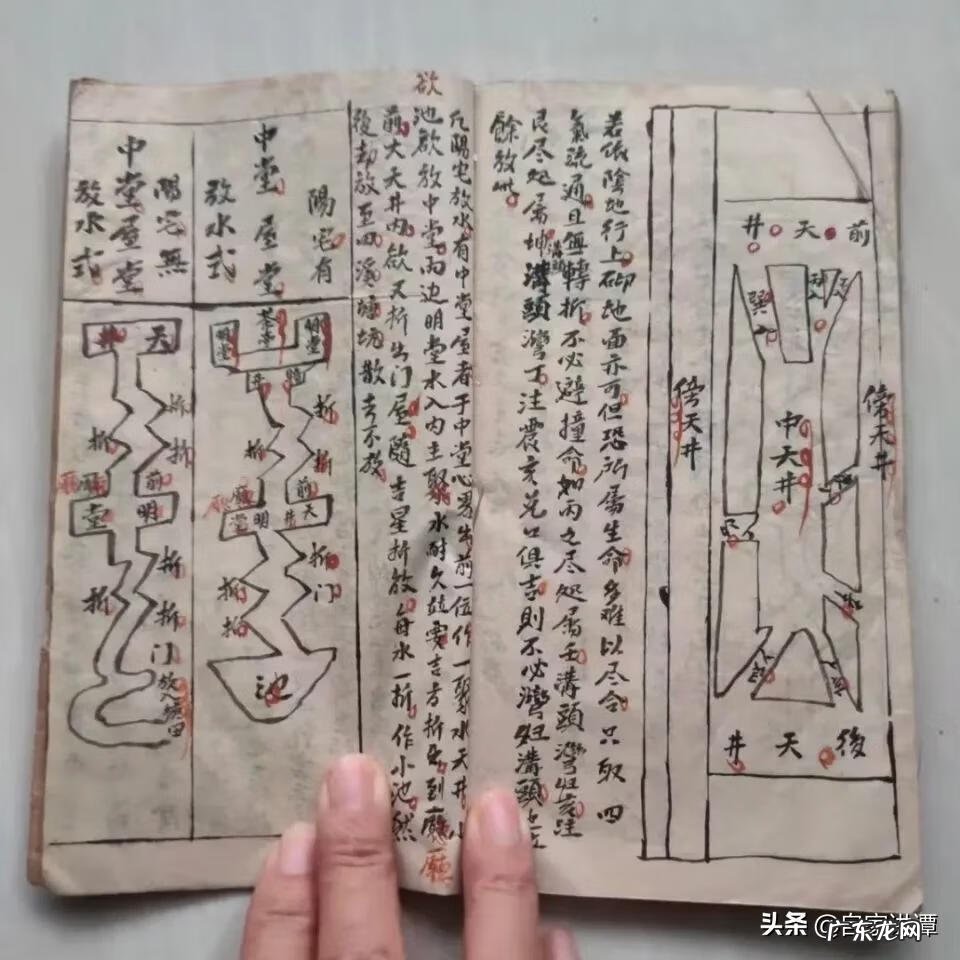 前天井
傍天井
中天井
傍天井
巽
後天井
若依陰地行上砌地面亦可但恐所屬生命多难以尽合只取四
氣疏通且無轉折不必避撞命如丙之尽处屬壬溝頭灣
艮尽处屬坤溝頭灣丁注震亥兑口俱吉則不必灣溝頭
餘放此
欲
凡陽宅放水有中堂屋者于中堂心另出前一位作一聚水天井小
池欲放中堂两边明堂水入内主聚水耐久並要吉方折出到廳
前大天井内欲又折出门屋随吉星折放每水一折作小池然
後却放至四溪塘坑散去不放
廳
陽宅有
中堂屋堂
放水式
明堂
茶亭
明堂
暗井
折
折
折
廳
前
堂明井天
折
门
折
折
池
陽宅無
中堂屋堂
放水式
天井
折
折
折
廳
前
堂明
折
折
折
门
放入塘田
头条 @客家湛谭
广东龙网